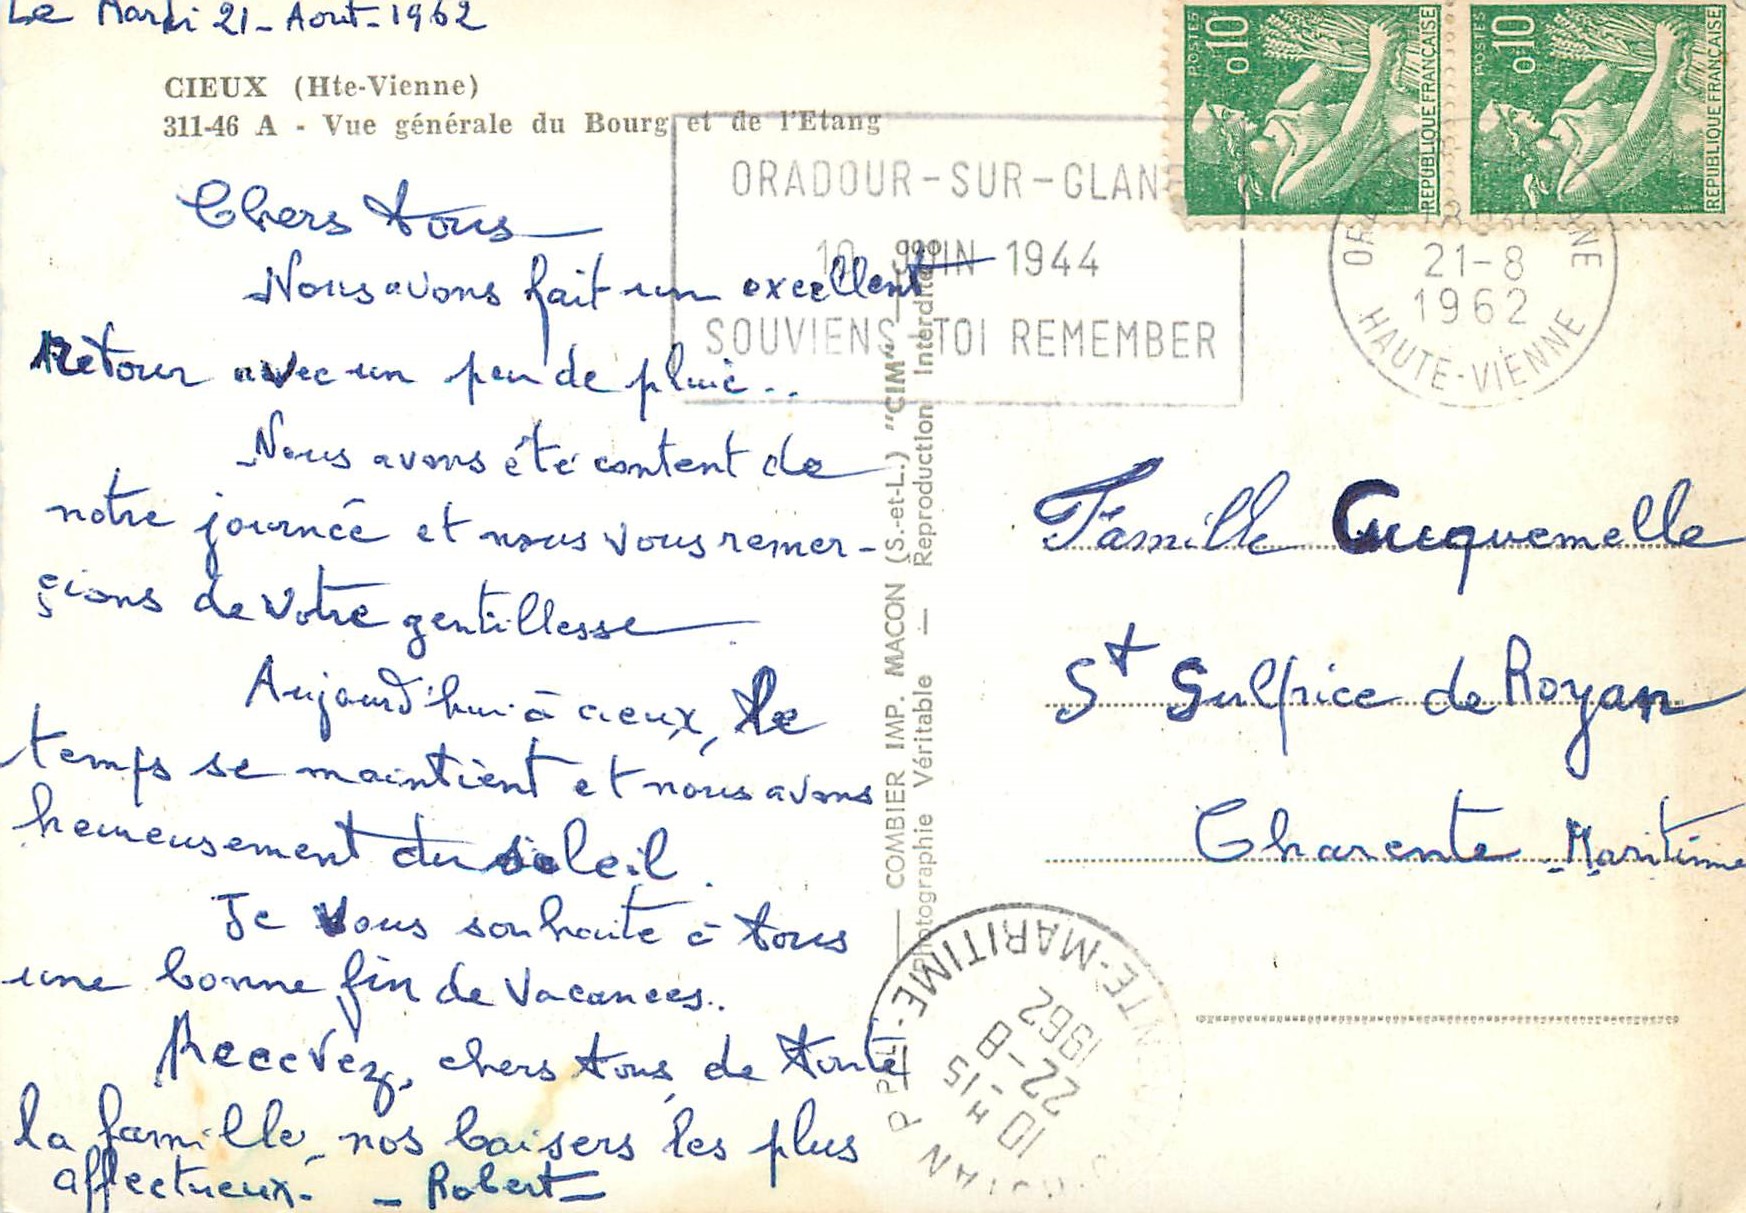 Le Mardi 21 - Aout - 1962
CIEUX (Hte-Vienne)
311-46 A - Vue générale du Bourg et de l'Etang
Chers tous
Nous avons fait un excellent
Retour avec un peu de pluie..
Nous avons été content de
notre journée et nous vous remer-
çions de votre gentillesse
Aujourd'hui à cieux, le
temps se maintient et nous avons
heureusement du soleil.
Je vous souhaite à tous
une bonne fin de vacances..
Recevez, chers tous, de toute
la famille, nos baisers les plus
affectueux. - Robert
COMBIER IMP. MACON (S.-et-L.) "CIM"
Photographie Véritable — Reproduction Interdite
ORADOUR-SUR-GLAN
10 JUIN 1944
SOUVIENS-TOI REMEMBER
POSTES
0,10
REPUBLIQUE FRANÇAISE
POSTES
0,10
REPUBLIQUE FRANÇAISE
21-8
1962
HAUTE-VIENNE
Famille Cuquemelle
St Sulpice de Royan
Charente-Maritime
10 H -15
22-8
1962
-MARITIME